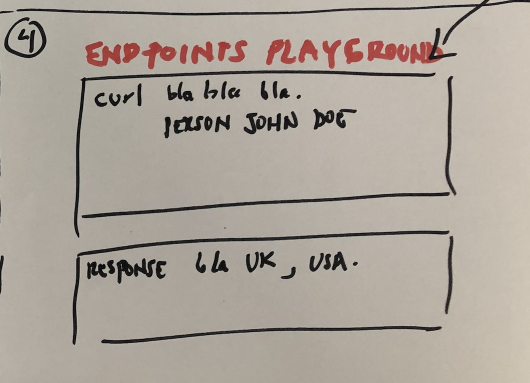 4
ENDPOINTS PLAYGROUND
curl bla bla bla.
PERSON JOHN DOE
RESPONSE bla UK, USA.